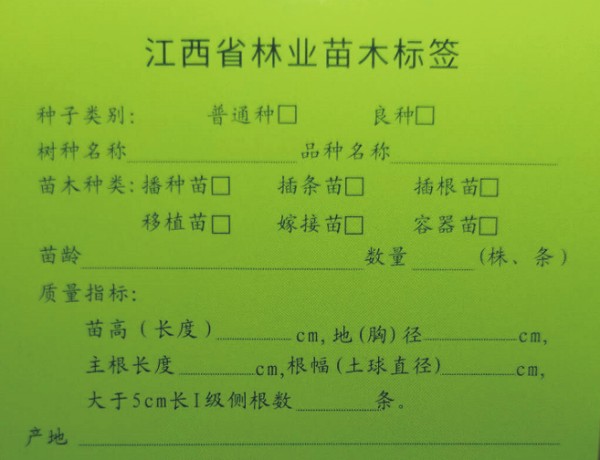 江西省林业苗木标签
种子类别: 普通种□ 良种□
树种名称__________品种名称__________
苗木种类:播种苗□ 插条苗□ 插根苗□
移植苗□ 嫁接苗□ 容器苗□
苗龄__________数量______(株、条)
质量指标:
苗高(长度)______cm,地(胸)径______cm,
主根长度______cm,根幅(土球直径)______cm,
大于5cm长I级侧根数______条。
产地__________